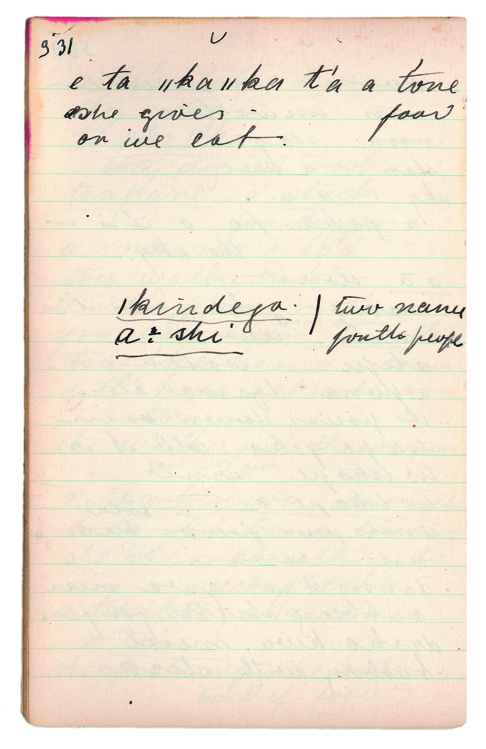 931
e ta ııkaııka t'a a tone
she gives food
or we eat.
ıkindega. | two names
a : shi for the people